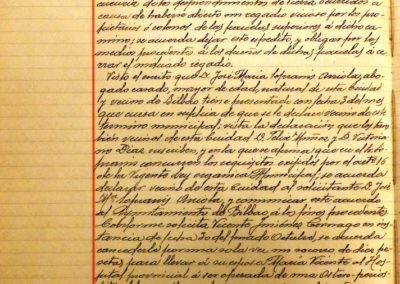 ocurre de los desprendimientos de tierra ocurridos á
causa de haberse abierto un regadio vecinos por los pro-
pietarios ó colonos de las parcelas superiores á dicho ca-
mino; se acuerda dejar este expedito, y obligar por los
medios procedentes á los dueños de dichas parcelas á ce-
rrar el indicado regadio.
Visto el escrito que D. José Maria Sopranis Arriola, abo-
gado casado, mayor de edad, natural de esta Ciudad
y vecino de Bilbao tiene presentado con fecha 3 del mes
que cursa en súplica de que se le declare vecino de este
término municipal; vista la declaración que los tam-
bién vecinos de esta Ciudad D. Felix Yañez y D. Victoria-
no Diaz suscriben, y en la que se afirma que en el Sr. So-
pranis concurren los requisitos exigidos por el artº 16
de la vigente Ley orgánica Municipal, se acuerda
declarar vecino de esta Ciudad al solicitante D. José
Mª Sopranis Arriola, y comunicar este acuerdo
al Ayuntamiento de Bilbao á los fines procedentes.
Conforme solicita Vicente Jiménez Cornago en ins-
tancia de fecha 30 del pasado Octubre, se acuerda
concederle por una sola vez un socorro de diez pe-
setas para llevar á su esposa Maria Vicente al Hos-
pital provincial á ser operada de una Osteo-perios-